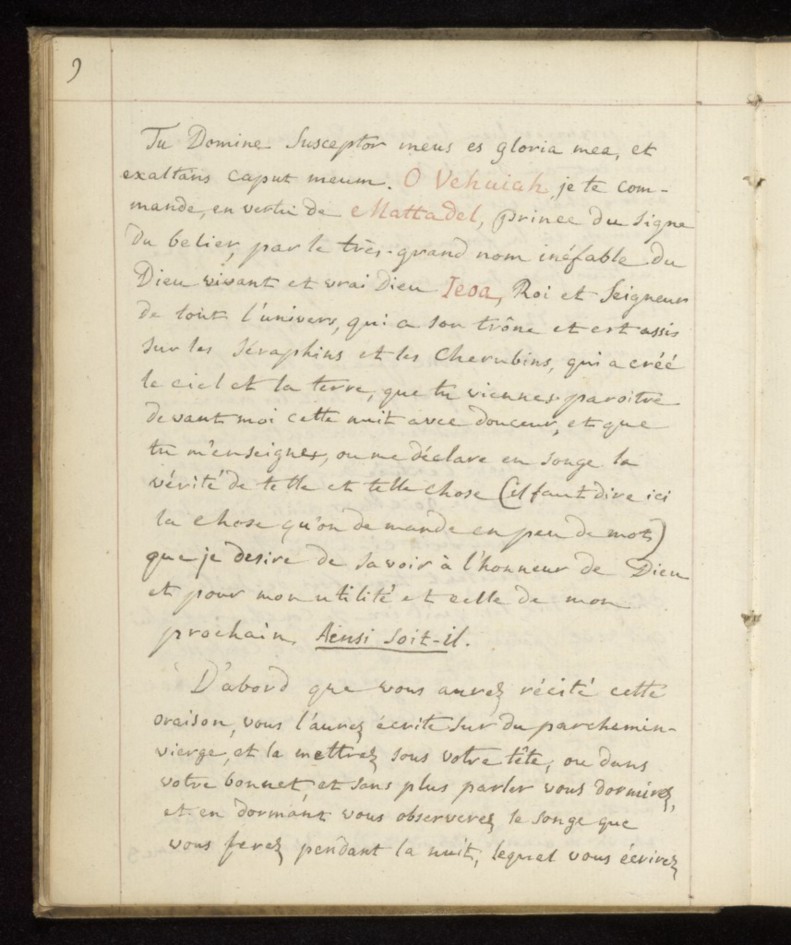 9
Tu Domine Susceptor meus es gloria mea, et
exaltans caput meum. O Vehuiah je te com-
mande, en vertu de Mattadel, Prince du Signe
du belier, par le très-grand nom inéfable du
Dieu vivant et vrai Dieu Ieoa, Roi et Seigneur
de tout l'univers, qui a son trône et est assis
sur les Séraphins et les Cherubins, qui a créé
le ciel et la terre, que tu viennes paroitre
devant moi cette nuit avec douceur, et que
tu m'enseignes, ou me déclare en songe la
vérité de telle et telle chose (il faut dire ici
la chose qu'on demande en peu de mots)
que je desire de savoir à l'honneur de Dieu
et pour mon utilité et celle de mon
prochain. Ainsi Soit-il.
D'abord que vous aurez récité cette
oraison, vous l'aurez écrite sur du parchemin-
vierge, et la mettrez sous votre tête, ou dans
votre bonnet, et sans plus parler vous dormirez,
et en dormant vous observerez le songe que
vous ferez pendant la nuit, lequel vous écrirez